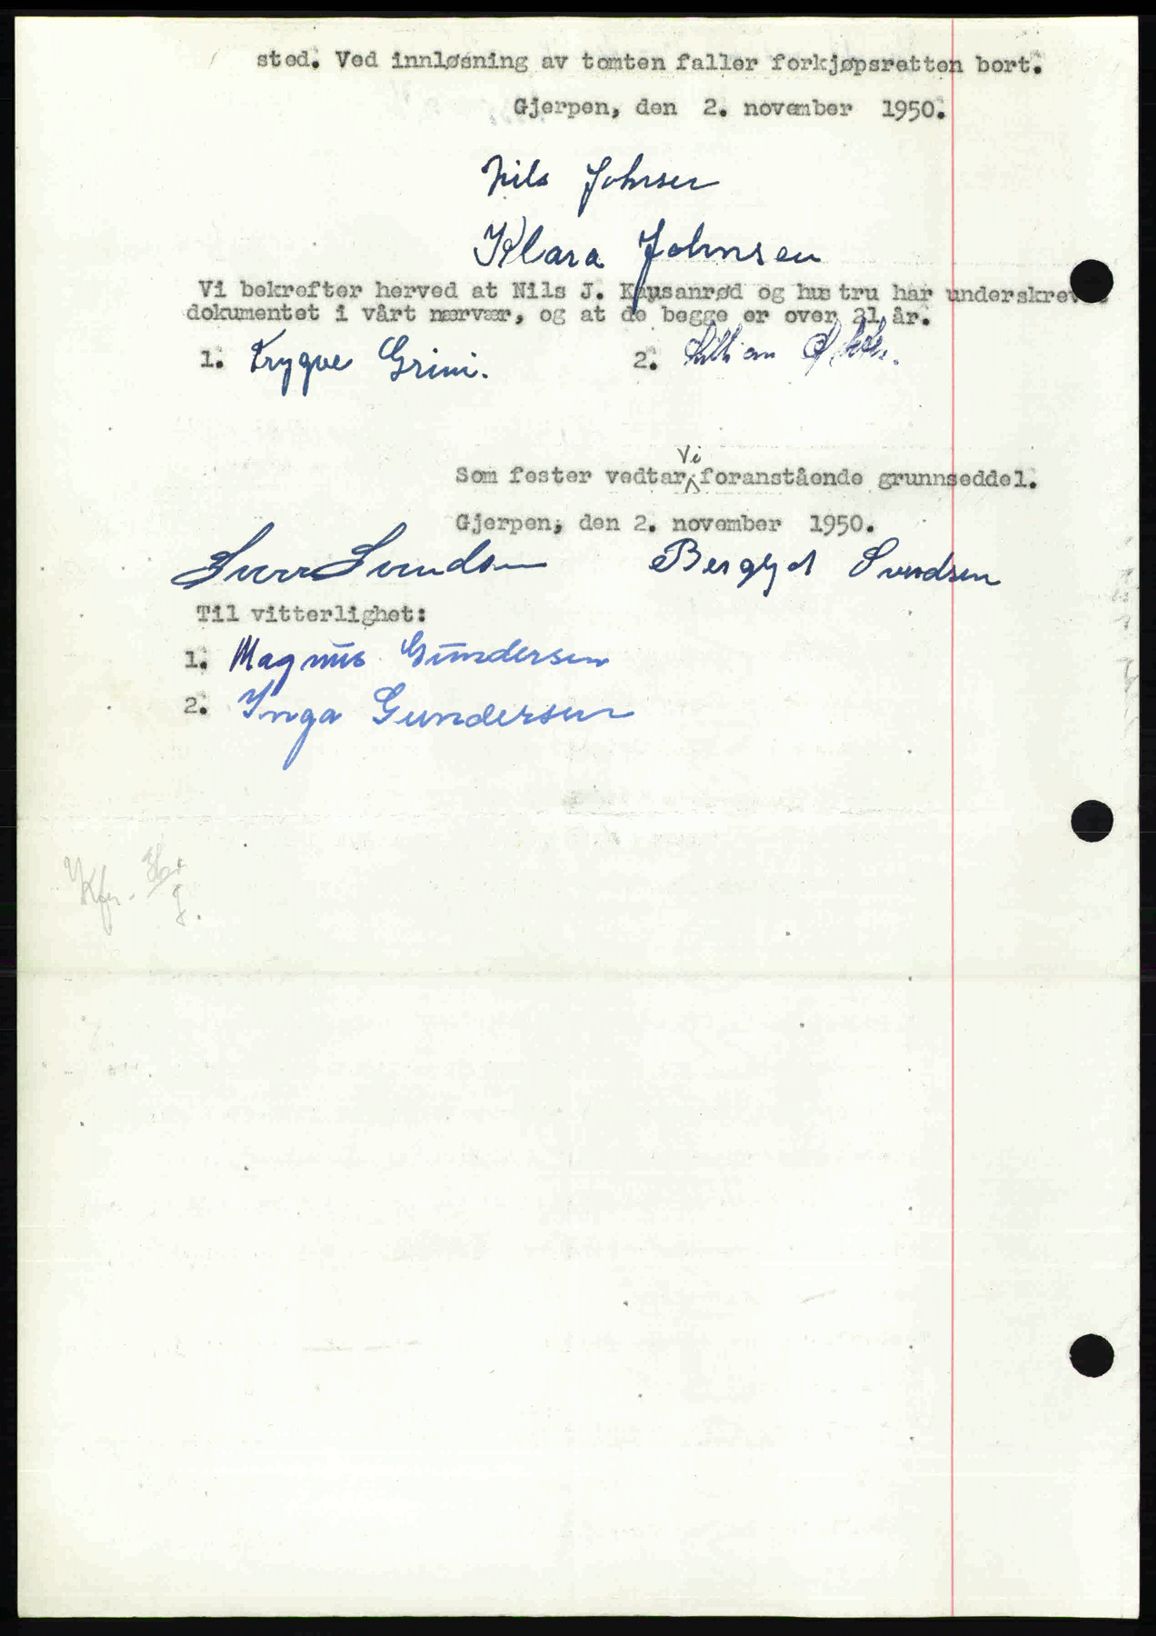 sted. Ved innløsning av tomten faller forkjøpsretten bort.
Gjerpen, den 2. november 1950.
Nils Johnsen
Klara Johnsen
Vi bekrefter herved at Nils J. Knusanrød og hustru har underskrevet
dokumentet i vårt nærvær, og at de begge er over 21 år.
1. Trygve Grini. 2.
Vi
Som fester vedtar foranstående grunnseddel.
Gjerpen, den 2. november 1950.
Svendsen Bergljot Svendsen
Til vitterlighet:
1. Magnus Gundersen
2. Inga Gundersen
Kfr.